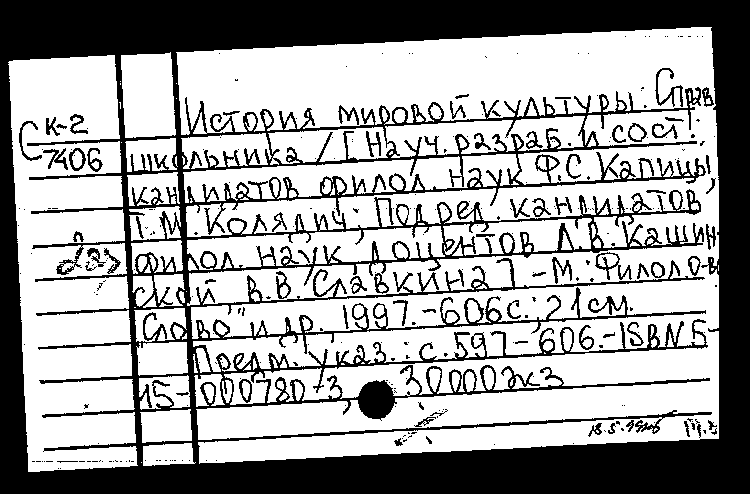 К-2
С 7406
2аз
История мировой культуры: Справ.
школьника / [Науч. разраб. и сост.:
кандидатов филол. наук Ф.С. Капицы,
Т.М. Колядич; Под ред. кандидатов
филол. наук, доцентов Л.В. Кашин-
ской, В.В. Славкина]. - М.: Филол. о-во
"Слово" и др., 1997. - 606 с.; 21 см.
Предм. указ.: с. 597-606. - ISBN 5-
15-000780-3, 30000 экз
18.5.99